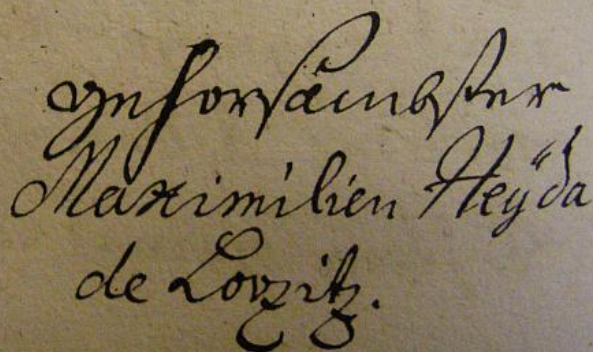 gehorsambster
Maximilien Heÿda
de Lovzitz.